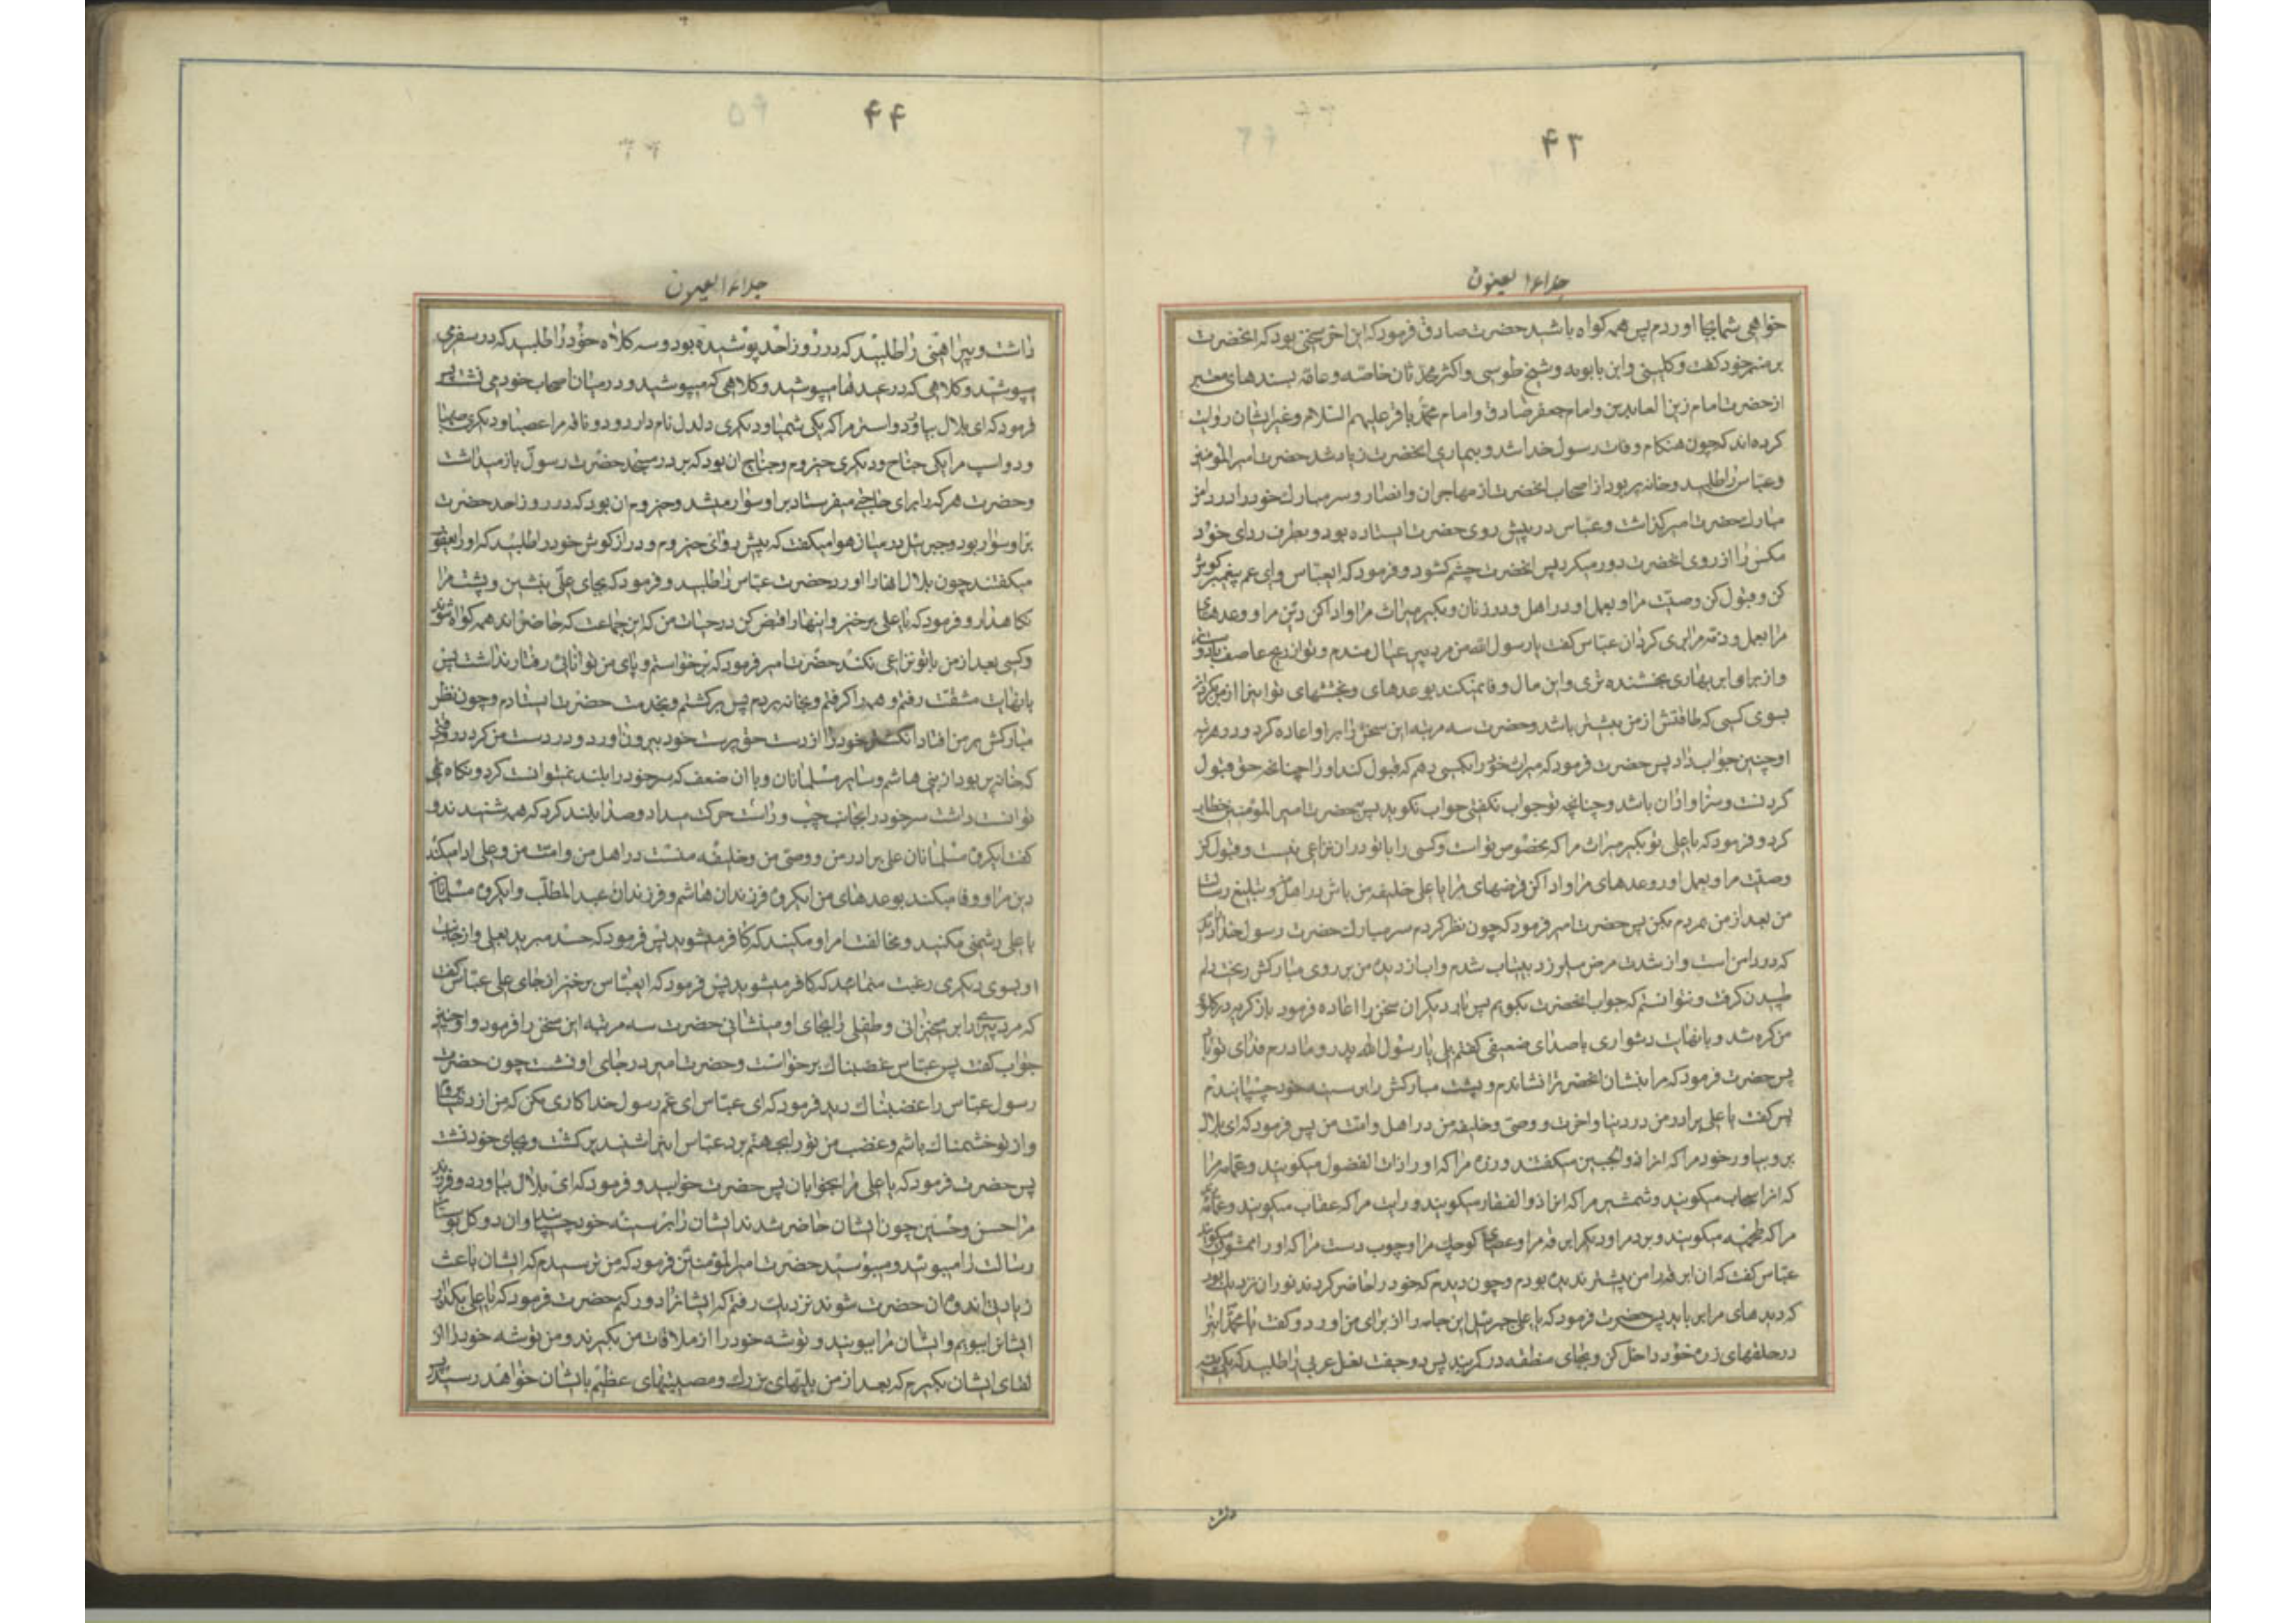 ۴۳
جلاء العیون
خواهی شمابجا اوردم پس همه کواه باشید حضرت صادق فرمود که این اخر سخنی بود که انحضرت
بر منبر خود کفت و کلینی و ابن بابویه و شیخ طوسی و اکثر محدثان خاصه و عامه بسندهای معتبر
از حضرت امام زین العابدین و امام جعفر صادق و امام محمد باقر علیهم السلام و غیر ایشان روایت
کرده‌اند که چون هنکام وفات رسول خدا شد و بیماری انحضرت زیاد شد حضرت امیر المؤمنین
و عباس را طلبید و خانه پر بود از اصحاب انحضرت از مهاجران و انصار و سر مبارک خود را در دامن
مبارک حضرت امیر کذاشت و عباس در پیش روی حضرت ایستاده بود و بطرف ردای خود
مکس را از روی انحضرت دور میکرد پس انحضرت چشم کشود و فرمود که ایعباس و ای عم پیغمبر کوش
کن و قبول کن وصیت مرا و بعمل اور در اهل و در زنان و بکیر میراث مرا و ادا کن دین مرا و وعدهای
مرا بعمل و ذمه مرا بری کردان عباس کفت یا رسول الله من مرد پیر عیال مندم و تو از ریح عاصف
و از ابر بهاری بخشنده تری و این مال وفا نمیکند بوعدهای و بخششهای تو اینرا از من بکردان
بسوی کسی که طاقتش از من بیشتر باشد و حضرت سه مرتبه این سخن را بر او اعاده کرد و در هر مرتبه
او چنین جواب داد پس حضرت فرمود که میراث خود را بکسی دهم که قبول کند او را چنانچه حق قبول
کردنست و سزاوار ان باشد و چنانچه تو جواب نکفتی جواب نکوید پس بحضرت امیر المؤمنین خطاب
کرد و فرمود که یا علی تو بکیر میراث مرا که مخصوص تو است و کسی را با تو در ان نزاعی نیست و قبول کن
وصیت مرا و بعمل اور وعدهای مرا و ادا کن قرضهای مرا یا علی خلیفه من باش در اهل من و تبلیغ رسالت
من بعد از من بمردم بکن پس حضرت امیر فرمود که چون نظر کردم سر مبارک حضرت رسول خدا را دیدم
که در دامن است و از شدت مرض میلرزد بیتاب شدم و اب از دیده من بر روی مبارکش ریخت دلم
طپیدن کرفت و نتوانستم که جواب انحضرت بکویم پس بار دیکر ان سخن را اعاده فرمود باز کریه در کلوی
من کره شد و بانهایت دشواری با صدای ضعیفی کفتم بلی یا رسول الله پدر و مادرم فدای تو باد
پس حضرت فرمود که مرا بنشان انحضرت را نشاندم و پشت مبارکش را بر سینه خود چسپانیدم
پس کفت یا علی برادر من در دنیا و اخرت و وصی و خلیفه من در اهل و امت من پس فرمود که ای بلال
برو بیاور خود مرا که انرا ذو الجبین میکفتند و زره مرا که او را ذات الفضول میکویند و عمامه مرا
که انرا سحاب میکویند و شمشیر مرا که انرا ذو الفقار میکویند و رایت مرا که عقاب میکویند و عمامه
مرا که میکویند و برد مرا و دیکر ابرقه مرا و عصای کوچک مرا و چوب دست مرا که او را ممشوق میکویند
عباس کفت که ان ابرقه را من پیشتر ندیده بودم و چون دیدم که خود را حاضر کردند نور ان نزدیک بود
که دیدهای مرا برباید پس حضرت فرمود که یا علی جبرئیل این جامه را از برای من اورد و کفت یا محمد اینرا
در حلقهای زره خود داخل کن و بجای منطقه در کمر بند پس دو جفت نعل عربی را طلبید که یکی پینه
داشت
۴۴
جلاء العیون
داشت و پیراهنی را طلبید که در روز احد پوشیده بود و سه کلاه خود را طلبید که در سفر می
پوشید و کلاهی که در عیدها میپوشید و کلاهی که میپوشید و در میان اصحاب خود می نشست پس
فرمود که ای بلال بیاور دو استر مرا که یکی شهبا و دیکری دلدل نام دارد و دو ناقه مرا عضبا و دیکری صهبا
و دو اسپ مرا یکی جناح و دیکری حیزوم و جناح ان بود که بر در مسجد حضرت رسول باز میداشت
و حضرت هر که را برای حاجتی میفرستاد بر او سوار میشد و حیزوم ان بود که در روز احد حضرت
بر او سوار بود و جبرئیل در میان هوا میکفت که پیش رو ای حیزوم و دراز کوش خود را طلبید که او را یعفور
میکفتند چون بلال اینها را اورد حضرت عباس را طلبید و فرمود که بجای علی بنشین و پشت مرا
نکاهدار و فرمود که یا علی برخیز و اینها را قبض کن در حیات من که این جماعت که حاضرند همه کواه شوند
و کسی بعد از من با تو نزاعی نکند حضرت امیر فرمود که برخواستم و پای من توانائی رفتار نداشت پس
بانهایت مشقت رفتم و همه را کرفتم و بخانه بردم پس برکشتم و بخدمت حضرت ایستادم و چون نظر
مبارکش بر من افتاد انکشتر خود را از دست حق پرست خود بیرون اورد و در دست من کرد در وقتی
که خانه پر بود از بنی هاشم و سایر مسلمانان و با ان ضعف که سر خود را بلند نمیتوانست کرد و نکاه نمی
توانست داشت سر خود را بجانب چپ و راست حرکت میداد و صدا بلند کرد که همه شنیدند و
کفت ایکروه مسلمانان علی برادر من و وصی من و خلیفه منست در اهل من و امت من و علی ادا میکند
دین مرا و وفا میکند بوعدهای من ایکروه فرزندان هاشم و فرزندان عبد المطلب و ایکروه مسلمانان
با علی دشمنی مکنید و مخالفت امر او مکنید که کافر میشوید پس فرمود که حسد مبرید بعلی و از جانب
او بسوی دیکری رغبت منمائید که کافر میشوید پس فرمود که ایعباس برخیز از جای علی عباس کفت
که مرد پیری را بر میخیزانی و طفلی را بجای او مینشانی حضرت سه مرتبه این سخن را فرمود و او چنین
جواب کفت پس عباس غضبناک برخواست و حضرت امیر در جای او نشست چون حضرت
رسول عباس را غضبناک دید فرمود که ای عباس ای عم رسول خدا کاری مکن که من از دنیا
و از تو خشمناک باشم و غضب من تو را بجهنم برد عباس اینرا شنید برکشت و بجای خود نشست
پس حضرت فرمود که یا علی مرا بخوابان پس حضرت خوابید و فرمود که ای بلال بیاور دو فرزند
مرا حسن و حسین چون ایشان حاضر شدند ایشان را بر سینه خود چسپانید و ان دو کل بوستان
رسالت را میبوئید و میبوسید حضرت امیر المؤمنین فرمود که من ترسیدم که ایشان باعث
زیادتی اندوه ان حضرت شوند نزدیک رفتم که ایشانرا دور کنم حضرت فرمود که یا علی بکذار
ایشانرا ببویم و ایشان مرا ببویند و توشه خود را از ملاقات من بکیرند و من توشه خود را از
لقای ایشان بکیرم که بعد از من بلیتهای بزرک و مصیبتهای عظیم بایشان خواهد رسید پس